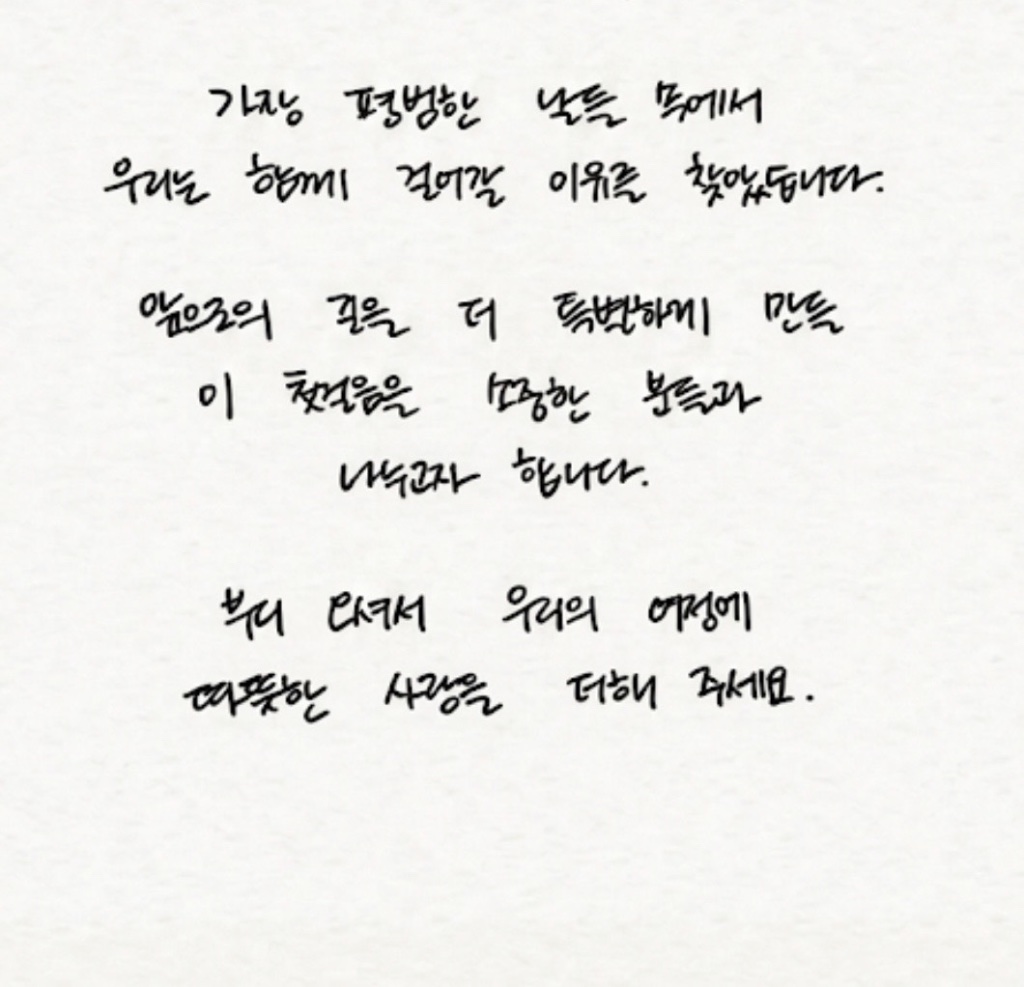 가장 평범한 날들 속에서
우리는 함께 걸어갈 이유를 찾았습니다.
앞으로의 길을 더 특별하게 만들
이 첫걸음을 소중한 분들과
나누고자 합니다.
부디 오셔서 우리의 여정에
따뜻한 사랑을 더해 주세요.